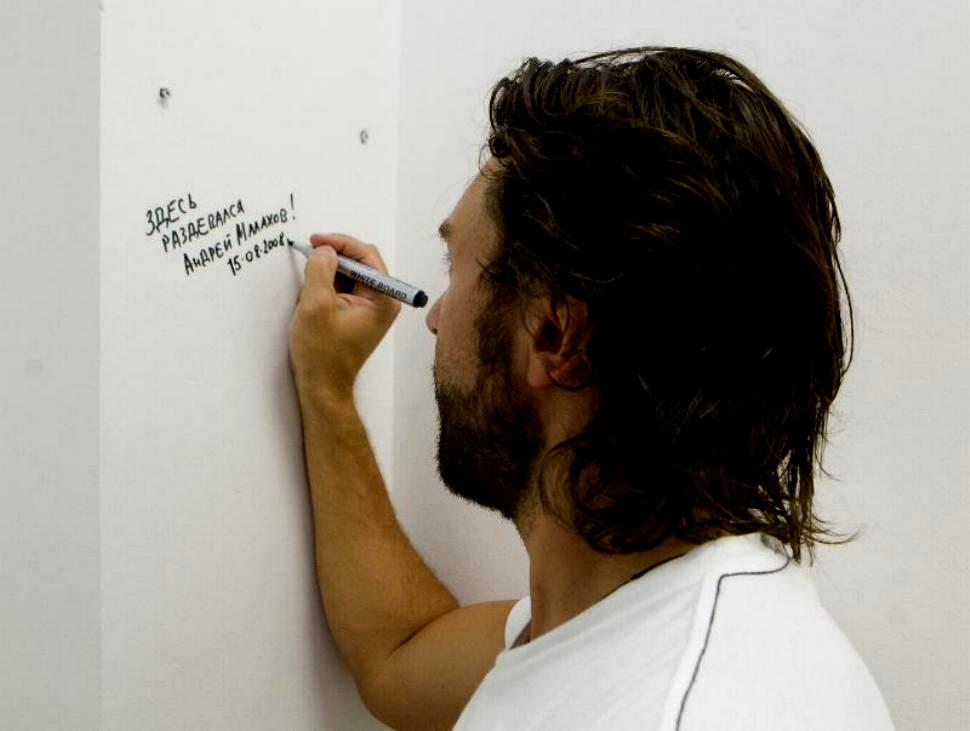 ЗДЕСЬ
РАЗДЕВАЛСЯ
АНДРЕЙ МАЛАХОВ!
15.08.2008
WHITE BOARD